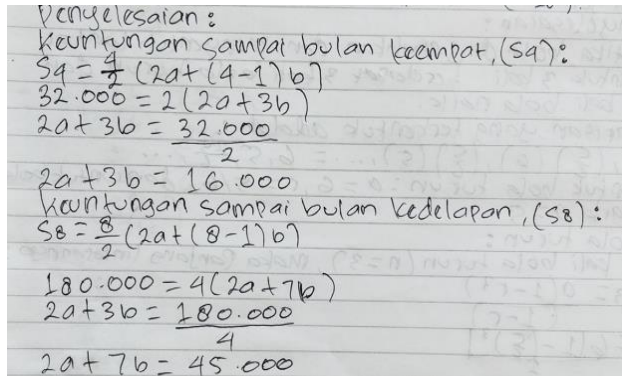 Penyelesaian:
Keuntungan sampai bulan keempat, (S4):
S4 = 4/2 (2a + (4-1)b)
32.000 = 2(2a + 3b)
2a + 3b = 32.000/2
2a + 3b = 16.000
Keuntungan sampai bulan kedelapan, (S8):
S8 = 8/2 (2a + (8-1)b)
180.000 = 4(2a + 7b)
2a + 3b = 180.000/4
2a + 7b = 45.000